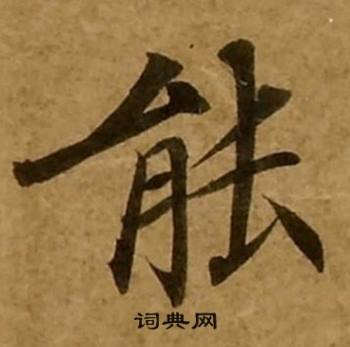 能
词典网